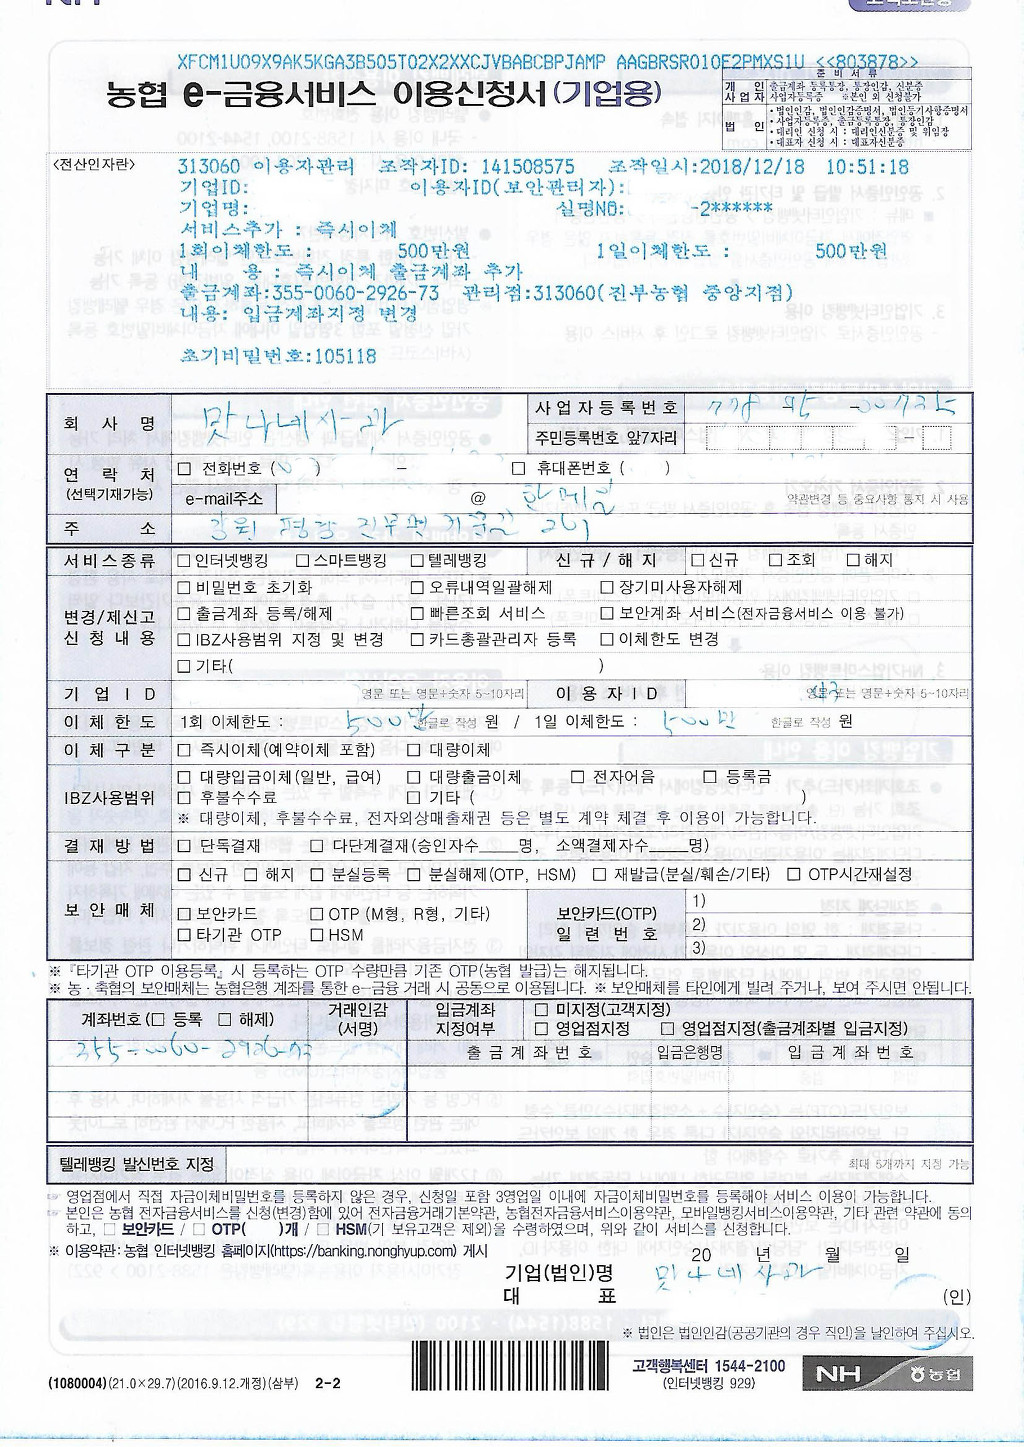 XFCM1U09X9AK5KGA3B505T02X2XXCJVBABCBPJAMP AAGBRSR010E2PMXS1U <<803878>>
농협 e-금융서비스 이용신청서(기업용)
준 비 서 류
개 인 사업자 출금계좌 등록통장, 통장인감, 신분증
사업자등록증 ※본인 외 신청불가
법 인 • 법인인감, 법인인감증명서, 법인등기사항증명서
• 사업자등록증, 출금등록통장, 통장인감
• 대리인 신청 시 : 대리인신분증 및 위임장
• 대표자 신청 시 : 대표자신분증
<전산인자란> 313060 이용자관리 조작자ID: 141508575 조작일시:2018/12/18 10:51:18
기업ID: 이용자ID(보안관리자):
기업명: 실명NO: -2******
서비스추가 : 즉시이체
1회이체한도 : 500만원 1일이체한도 : 500만원
내 용 : 즉시이체 출금계좌 추가
출금계좌:355-0060-2926-73 관리점:313060(진부농협 중앙지점)
내용: 입금계좌지정 변경
초기비밀번호:105118
회 사 명 맛나네사과 사업자등록번호
주민등록번호 앞7자리 –
연 락 처 (선택기재가능) □ 전화번호 ( ) – □ 휴대폰번호 ( )
e-mail주소 @ 한메일 약관변경 등 중요사항 통지 시 사용
주 소 강원 평창 진부면
서비스종류 □ 인터넷뱅킹 □ 스마트뱅킹 □ 텔레뱅킹 신 규 / 해 지 □ 신규 □ 조회 □ 해지
변경/재신고 신 청 내 용 □ 비밀번호 초기화 □ 오류내역일괄해제 □ 장기미사용자해제
□ 출금계좌 등록/해제 □ 빠른조회 서비스 □ 보안계좌 서비스(전자금융서비스 이용 불가)
□ IBZ사용범위 지정 및 변경 □ 카드총괄관리자 등록 □ 이체한도 변경
□ 기타( )
기 업 I D 영문 또는 영문+숫자 5~10자리 이 용 자 I D 영문 또는 영문+숫자 5~10자리
이 체 한 도 1회 이체한도 : 500만 한글로 작성 원 / 1일 이체한도 : 500만 한글로 작성 원
이 체 구 분 □ 즉시이체(예약이체 포함) □ 대량이체
IBZ사용범위 □ 대량입금이체(일반, 급여) □ 대량출금이체 □ 전자어음 □ 등록금
□ 후불수수료 □ 기타 ( )
※ 대량이체, 후불수수료, 전자외상매출채권 등은 별도 계약 체결 후 이용이 가능합니다.
결 재 방 법 □ 단독결재 □ 다단계결재(승인자수____명, 소액결제자수____명)
보 안 매 체 □ 신규 □ 해지 □ 분실등록 □ 분실해제(OTP, HSM) □ 재발급(분실/훼손/기타) □ OTP시간재설정
□ 보안카드 □ OTP (M형, R형, 기타) 보안카드(OTP) 일 련 번 호 1)
2)
□ 타기관 OTP □ HSM 3)
※ 『타기관 OTP 이용등록』 시 등록하는 OTP 수량만큼 기존 OTP(농협 발급)는 해지됩니다.
※ 농·축협의 보안매체는 농협은행 계좌를 통한 e-금융 거래 시 공동으로 이용됩니다. ※ 보안매체를 타인에게 빌려 주거나, 보여 주시면 안됩니다.
계좌번호 (□ 등록 □ 해제) 거래인감 (서명) 입금계좌 지정여부 □ 미지정(고객지정)
□ 영업점지정 □ 영업점지정(출금계좌별 입금지정)
355-0060-2926-73 출 금 계 좌 번 호 입금은행명 입 금 계 좌 번 호
텔레뱅킹 발신번호 지정 최대 5개까지 지정 가능
☞ 영업점에서 직접 자금이체비밀번호를 등록하지 않은 경우, 신청일 포함 3영업일 이내에 자금이체비밀번호를 등록해야 서비스 이용이 가능합니다.
☞ 본인은 농협 전자금융서비스를 신청(변경)함에 있어 전자금융거래기본약관, 농협전자금융서비스이용약관, 모바일뱅킹서비스이용약관, 기타 관련 약관에 동의
하고, □ 보안카드 / □ OTP( )개 / □ HSM(기 보유고객은 제외)을 수령하였으며, 위와 같이 서비스를 신청합니다.
※ 이용약관 : 농협 인터넷뱅킹 홈페이지(https://banking.nonghyup.com) 게시 20 년 월 일
기업(법인)명 맛나네사과
대 표 (인)
※ 법인은 법인인감(공공기관의 경우 직인)을 날인하여 주십시오.
(1080004)(21.0×29.7)(2016.9.12.개정)(삼부) 2-2
고객행복센터 1544-2100
(인터넷뱅킹 929)
NH 농협